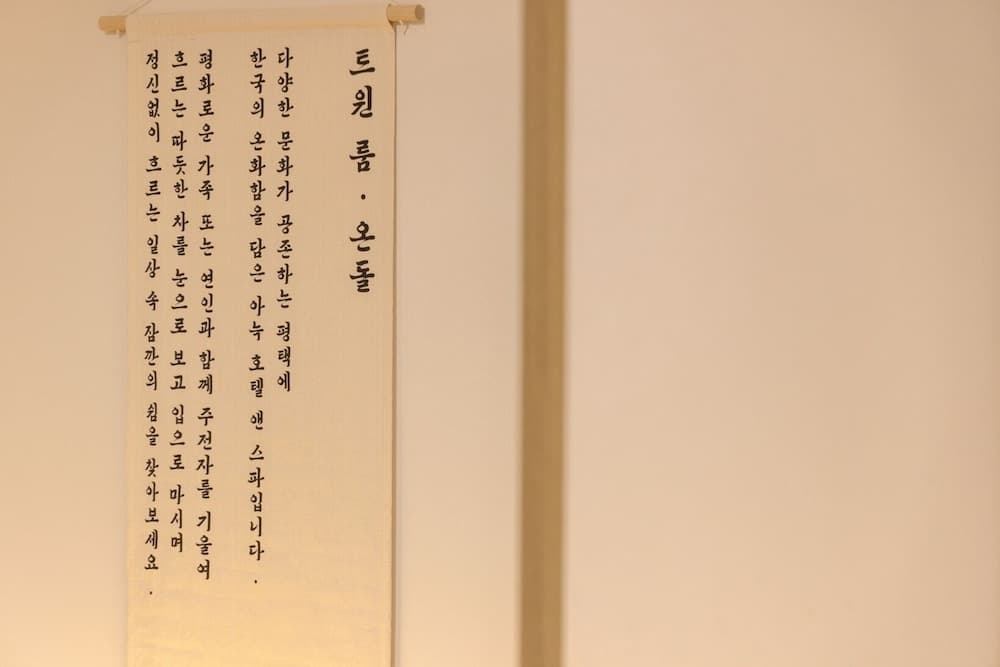 트윈 룸 · 온돌
다양한 문화가 공존하는 평택에
한국의 온화함을 담은 아늑 호텔 앤 스파입니다.
평화로운 가족 또는 연인과 함께 주전자를 기울여
흐르는 따듯한 차를 눈으로 보고 입으로 마시며
정신없이 흐르는 일상 속 잠깐의 쉼을 찾아보세요.